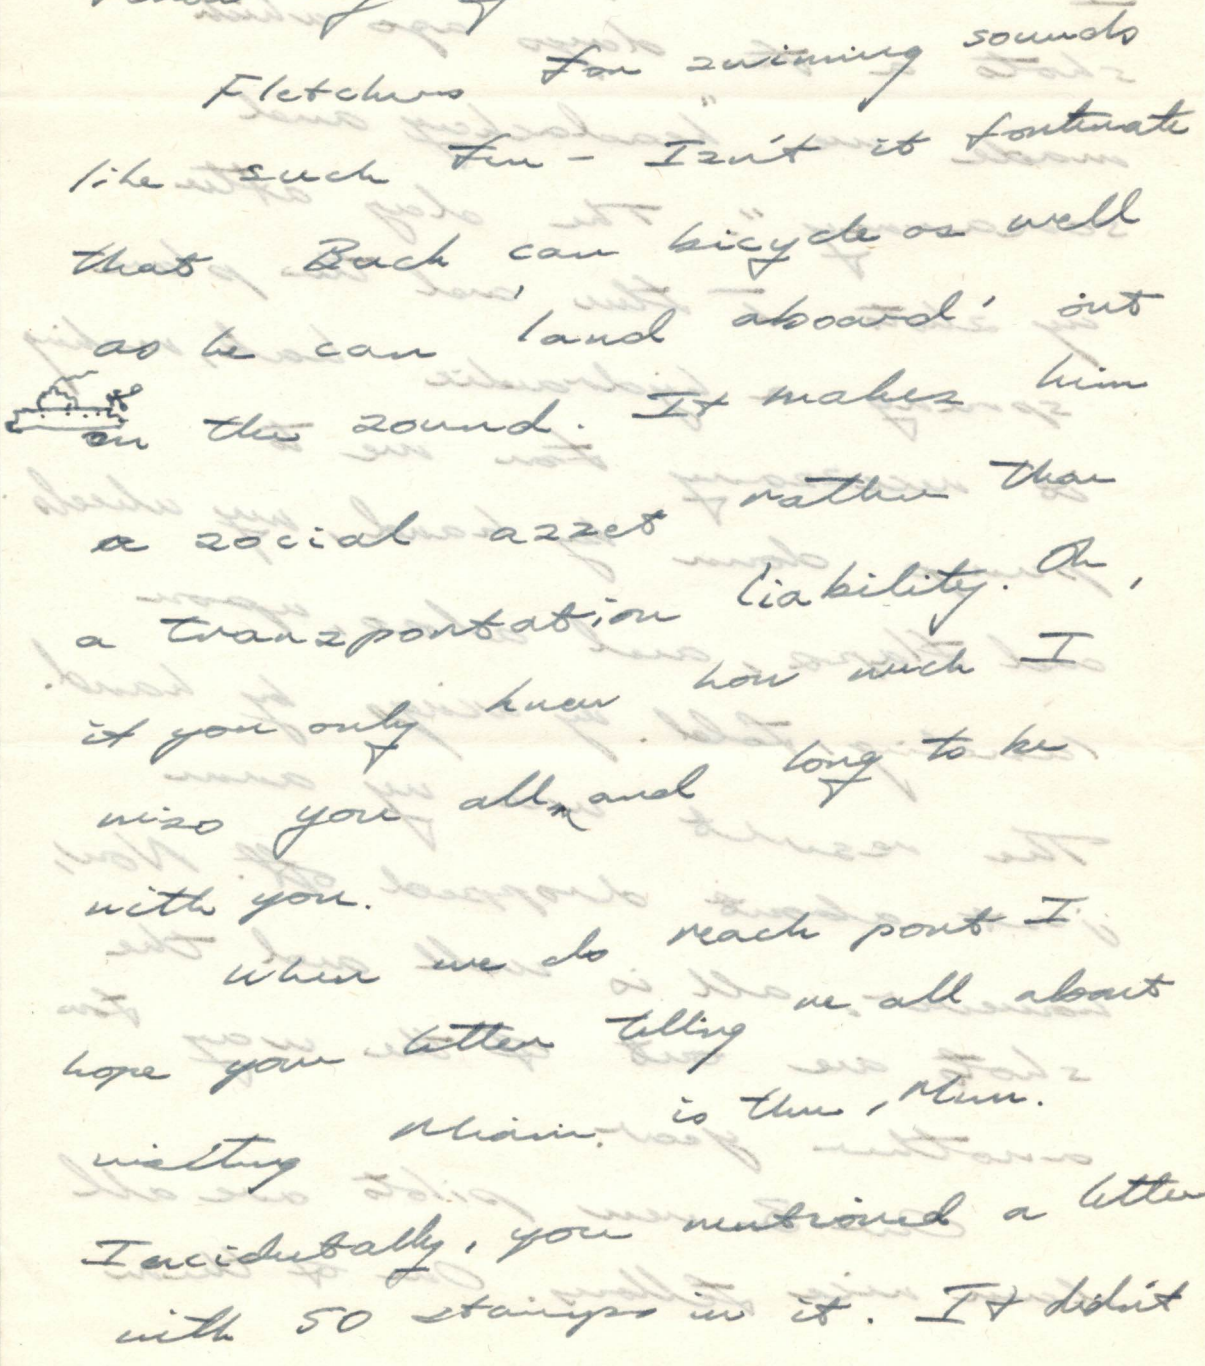 Fletchers for swimming sounds
like such fun - Isn't it fortunate
that Buck can bicycle as well
as he can 'land aboard' out
on the sound. It makes him
a social asset rather than
a transportation liability. Oh,
if you only knew how much I
miss you all, and long to be
with you.
When we do reach port I
hope your letter telling me all about
visiting Miami is there, Mum.
Incidentally, you mentioned a letter
with 50 stamps in it. It didn't